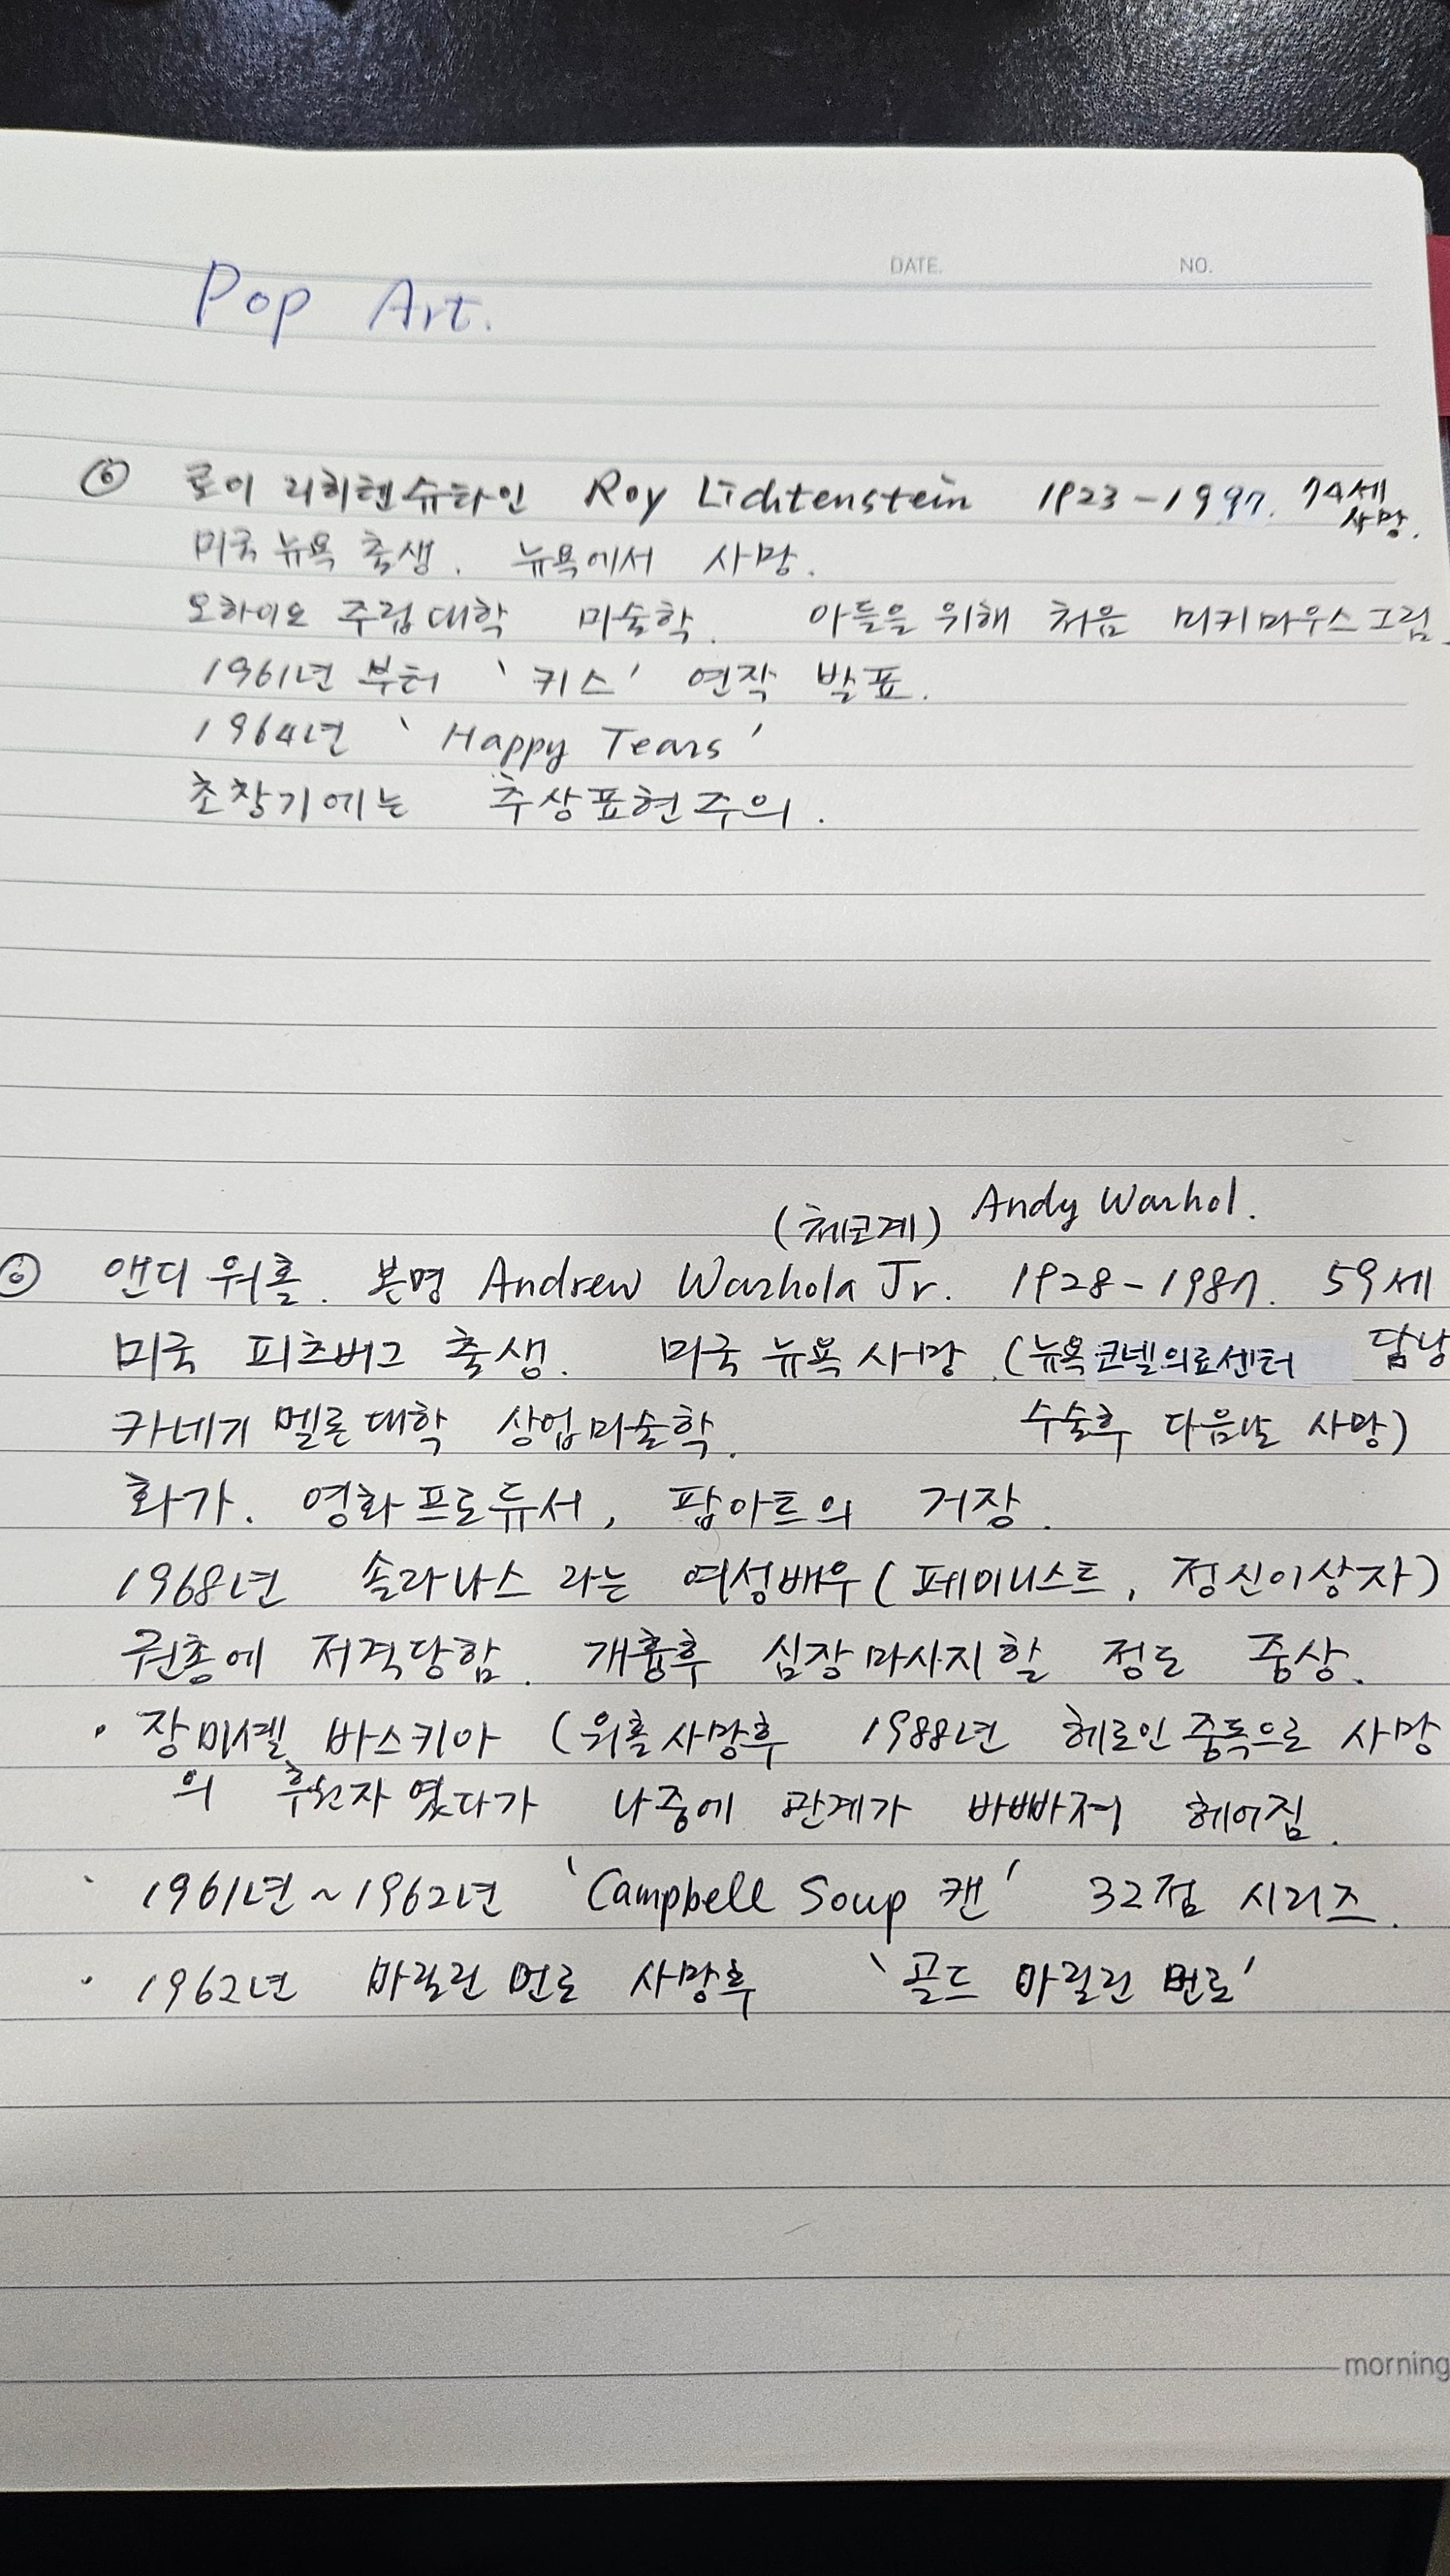 DATE. NO.
Pop Art.
⊙ 로이 리히텐슈타인 Roy Lichtenstein 1923-1997. 74세
사망.
미국 뉴욕 출생. 뉴욕에서 사망.
오하이오 주립대학 미술학. 아들을 위해 처음 미키마우스그림.
1961년 부터 '키스' 연작 발표.
1964년 'Happy Tears'
초창기에는 추상표현주의.
(체코계) Andy Warhol.
⊙ 앤디 워홀. 본명 Andrew Warhola Jr. 1928-1987. 59세
미국 피츠버그 출생. 미국 뉴욕 사망. (뉴욕코넬의료센터 담낭
카네기 멜론대학 상업미술학. 수술후 다음날 사망)
화가. 영화프로듀서, 팝아트의 거장.
1968년 솔라나스 라는 여성배우(페미니스트, 정신이상자)
권총에 저격당함. 개흉후 심장마사지할 정도 중상.
· 장미셸 바스키아 (워홀사망후 1988년 헤로인중독으로 사망
의 후원자였다가 나중에 관계가 바빠져 헤어짐.
· 1961년~1962년 'Campbell Soup 캔' 32점 시리즈.
· 1962년 마릴린 먼로 사망후 '골드 마릴린 먼로'
morning